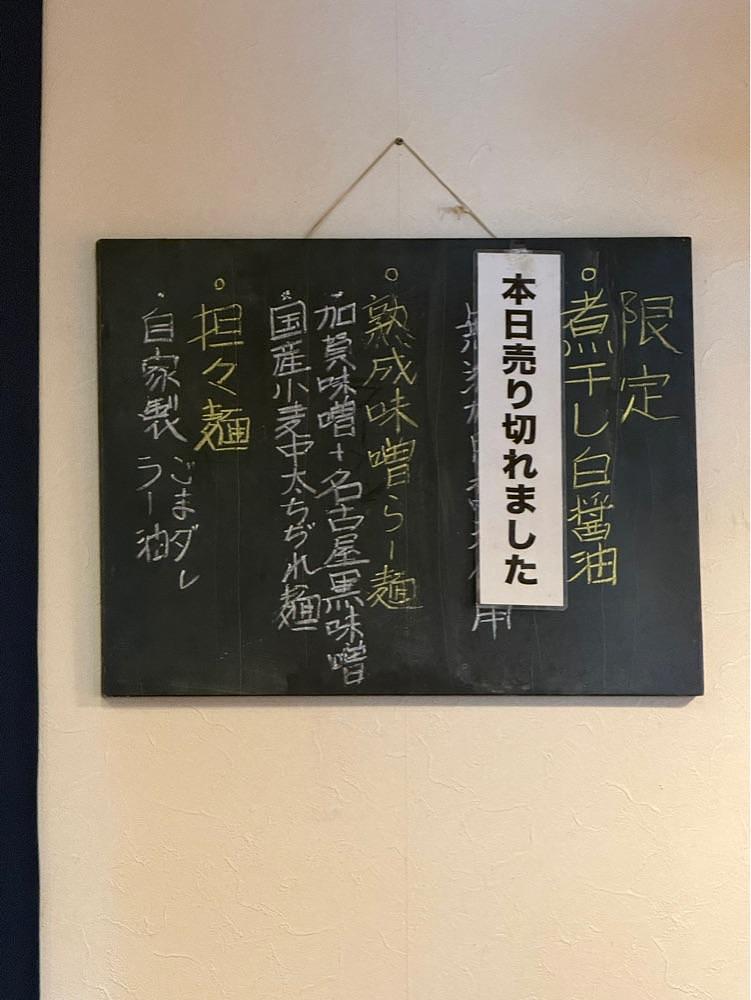 限定
煮干し白醤油
本日売り切れました
熟成味噌らー麺
加賀味噌+名古屋黒味噌
国産小麦中太ちぢれ麺
担々麺
自家製 ごまダレ
ラー油